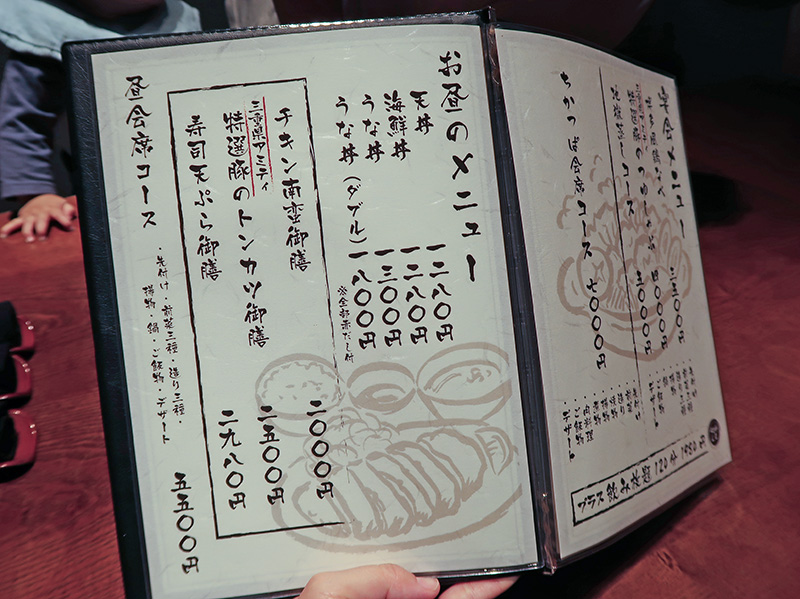 お昼のメニュー
天丼 一二八〇円
海鮮丼 一二八〇円
うな丼 一三〇〇円
うな丼(ダブル) 一八〇〇円
※全部赤だし付
チキン南蛮御膳 二〇〇〇円
三重県アミティ
特選豚のトンカツ御膳 二五〇〇円
寿司天ぷら御膳 二九八〇円
昼会席コース 五五〇〇円
・先付け・前菜三種・造り三種・
揚物・鍋・ご飯物・デザート
宴会メニュー
コース
ちかっぱ会席コース 七〇〇〇円
ご飯物
デザート
プラス飲み放題 120分 1980円